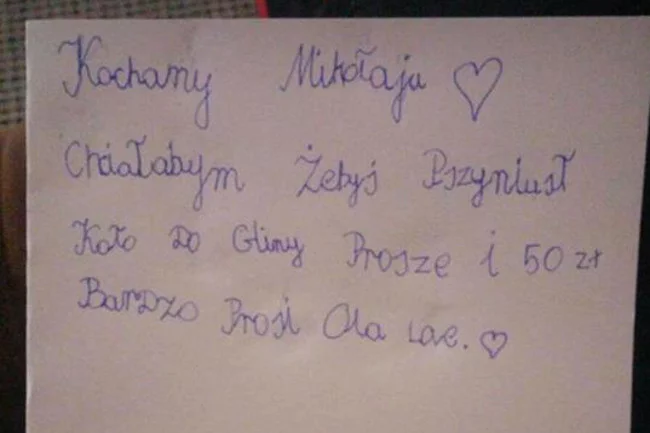 Kochamy Mikołaju ♡
Chciałabym Żebyś Pszyniusł
Koło Do Gliny Prosze i 50 zł
Bardzo Prosi Ola Lac. ♡